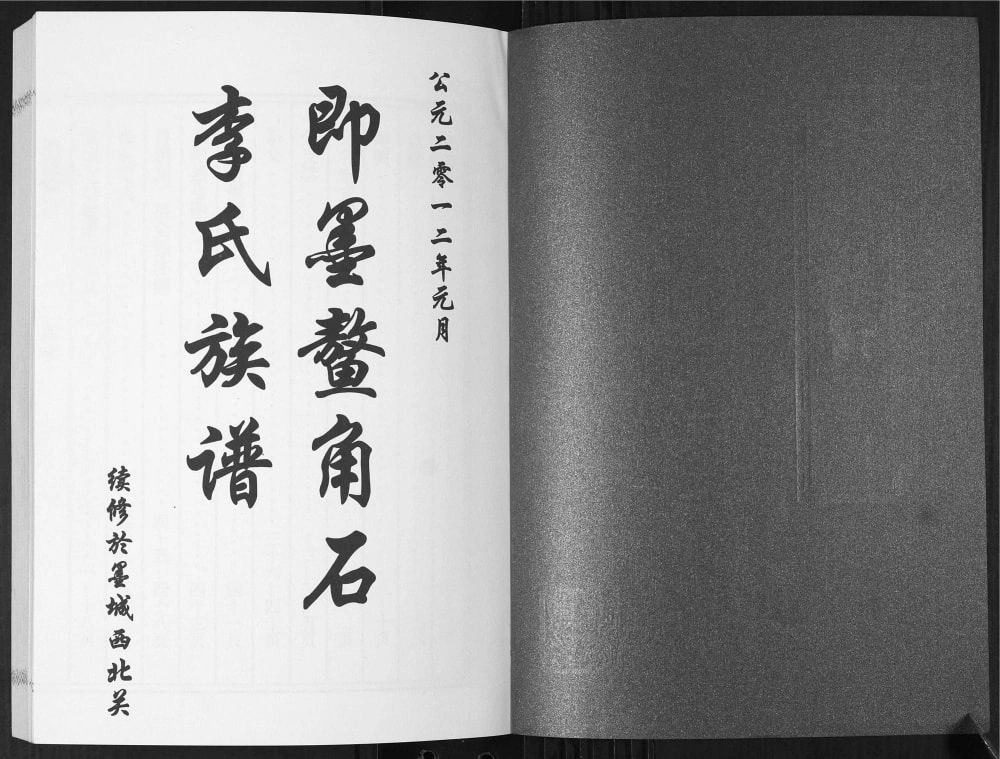 公元二零一二年元月
即墨鳌角石
李氏族谱
续修於墨城西北关